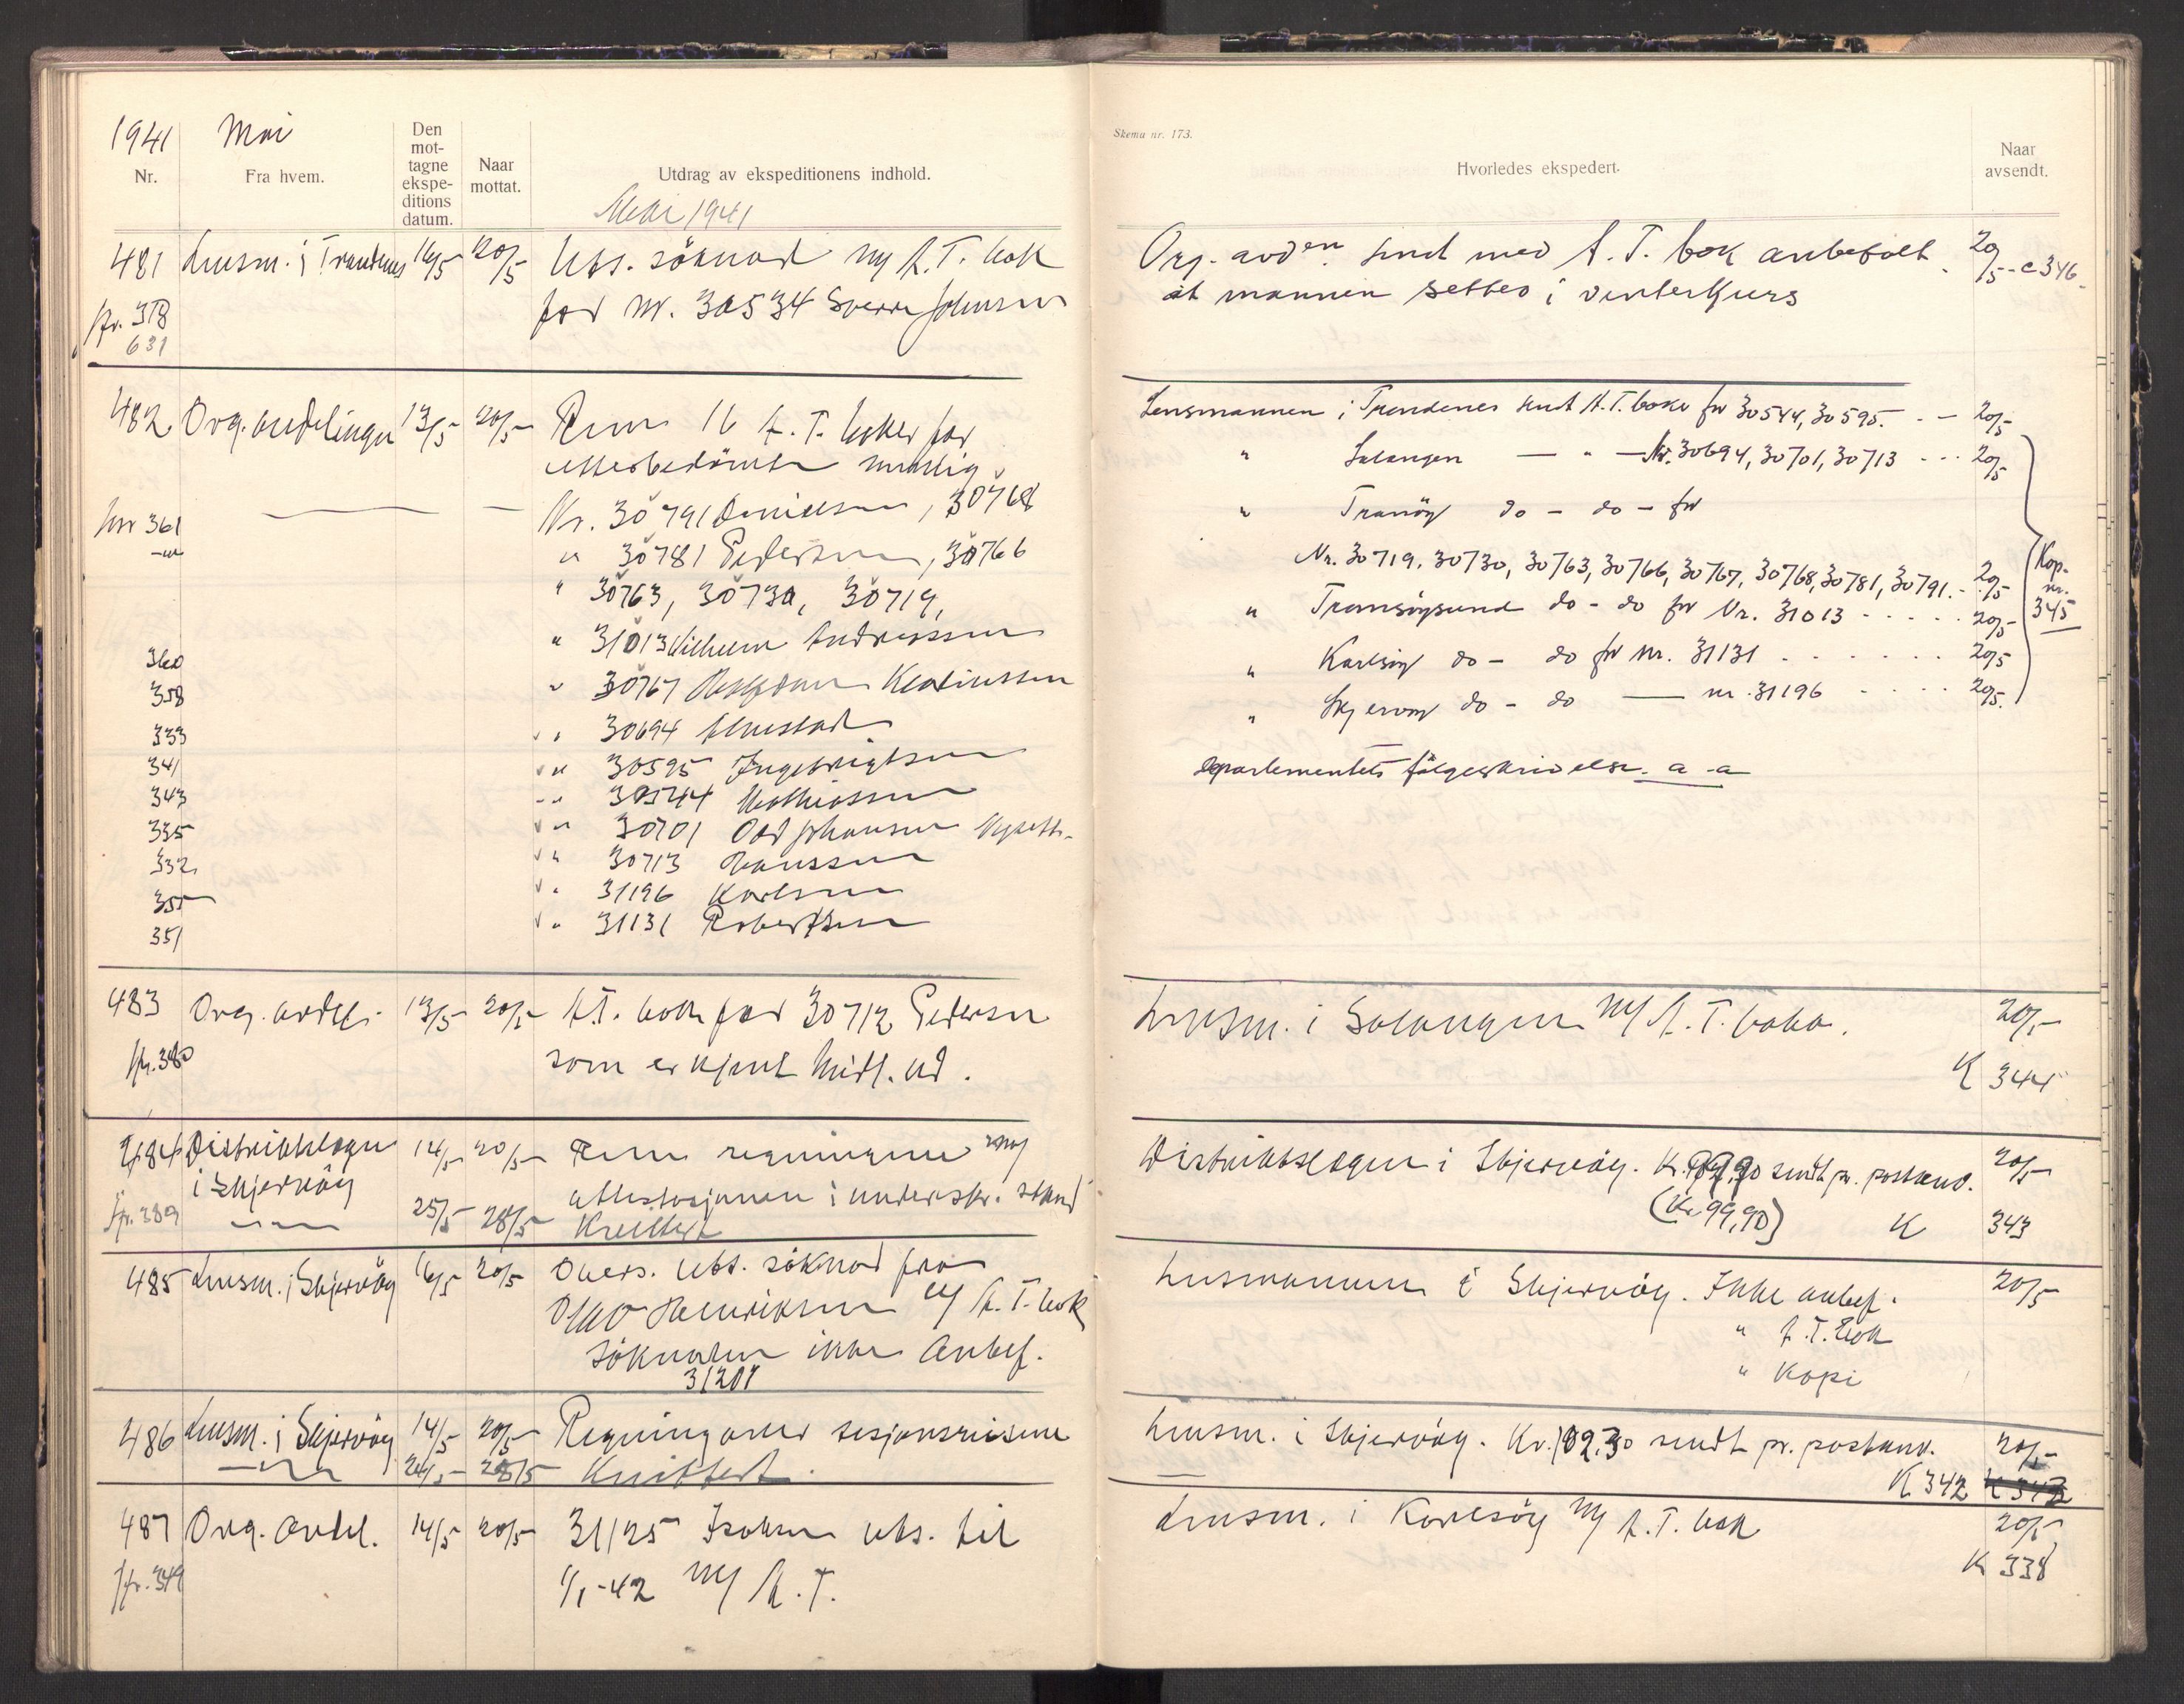 1941 Mai
Nr.
Fra hvem.
Den mot-
tagne
ekspe-
ditions
datum.
Naar
mottat.
Utdrag av ekspeditionens indhold.
Mai 1941
481 Lensm. i Trondenes 16/5 20/5 Uts. söknad m/ A.T. bok
for nr. 30534 Sverre Johnsen
fr. 378
631
482 Org. avdelingen 13/5 20/5 16 A.T. böker for
Nr. 30791 , 30768
361
" 30781 Pedersen, 30766
" 30763, 30730, 30719,
" 31013 Wilhelm Andreassen
360
" 30767
358
" 30694
333
" 30595 Ingebrigtsen
341
" 30544 Mathiassen
343
" 30701 Odd Johansen
335
" 30713 Hanssen
332
" 31196 Karlsen
355
" 31131 Robertsen
351
483 Org. avdel. 13/5 20/5 A.T. bok for 30712 Pedersen
som er kjent midl. ud.
fr. 380
484 Distriktslegen 14/5 20/5 regningene m/
i Skjervöy
attestasjonen i underskr. stand
fr. 389 25/5 28/5 Kvittert
485 Lensm. i Skjervöy 16/5 20/5 Overs. uts. söknad fra
Henriksen m/ A.T. bok
Söknaden ikke anbef.
31201
486 Lensm. i Skjervöy 14/5 20/5 Regning over sesjonsreisene
24/5 28/5 Kvittert.
487 Org. avdel. 14/5 20/5 31125 Isaksen uts. til
1/1-42 m/ A.T.
fr. 349
Skema nr. 173.
Hvorledes ekspedert.
Naar
avsendt.
Org. avden. sendt med A.T. bok anbefalt 20/5 - c 346.
at mannen settes i vinterkurs
Lensmannen i Trondenes sendt A.T. boke for 30544, 30595. - - 20/5
" Salangen — " — Nr. 30694, 30701, 30713 - - - 20/5
" Tranöy do - do - for
Nr. 30719, 30730, 30763, 30766, 30767, 30768, 30781, 30791. - 20/5
" Tromsöysund do - do for Nr. 31013 - - - - - 20/5
Kop.
nr.
345
" Karlsöy do - do for nr. 31131 - - - - - - 20/5
" Skjervöy do - do — nr. 31196 - - - - 20/5.
Departementets fölgeskrivelse a - a
Lensm. i Salangen m/ A.T. boka. 20/5
K 344
Distriktslegen i Skjervöy. Kr. 99,90 sendt pr. postanv. 20/5
(Kr. 99,90) K 343
Lensmannen i Skjervöy. Ikke anbef. 20/5
" A.T. bok
" Kopi
Lensm. i Skjervöy. Kr. 182,30 sendt pr. postanv. 20/5
K 342 K 342
Lensm. i Karlsöy m/ A.T. bok 20/5
K 338